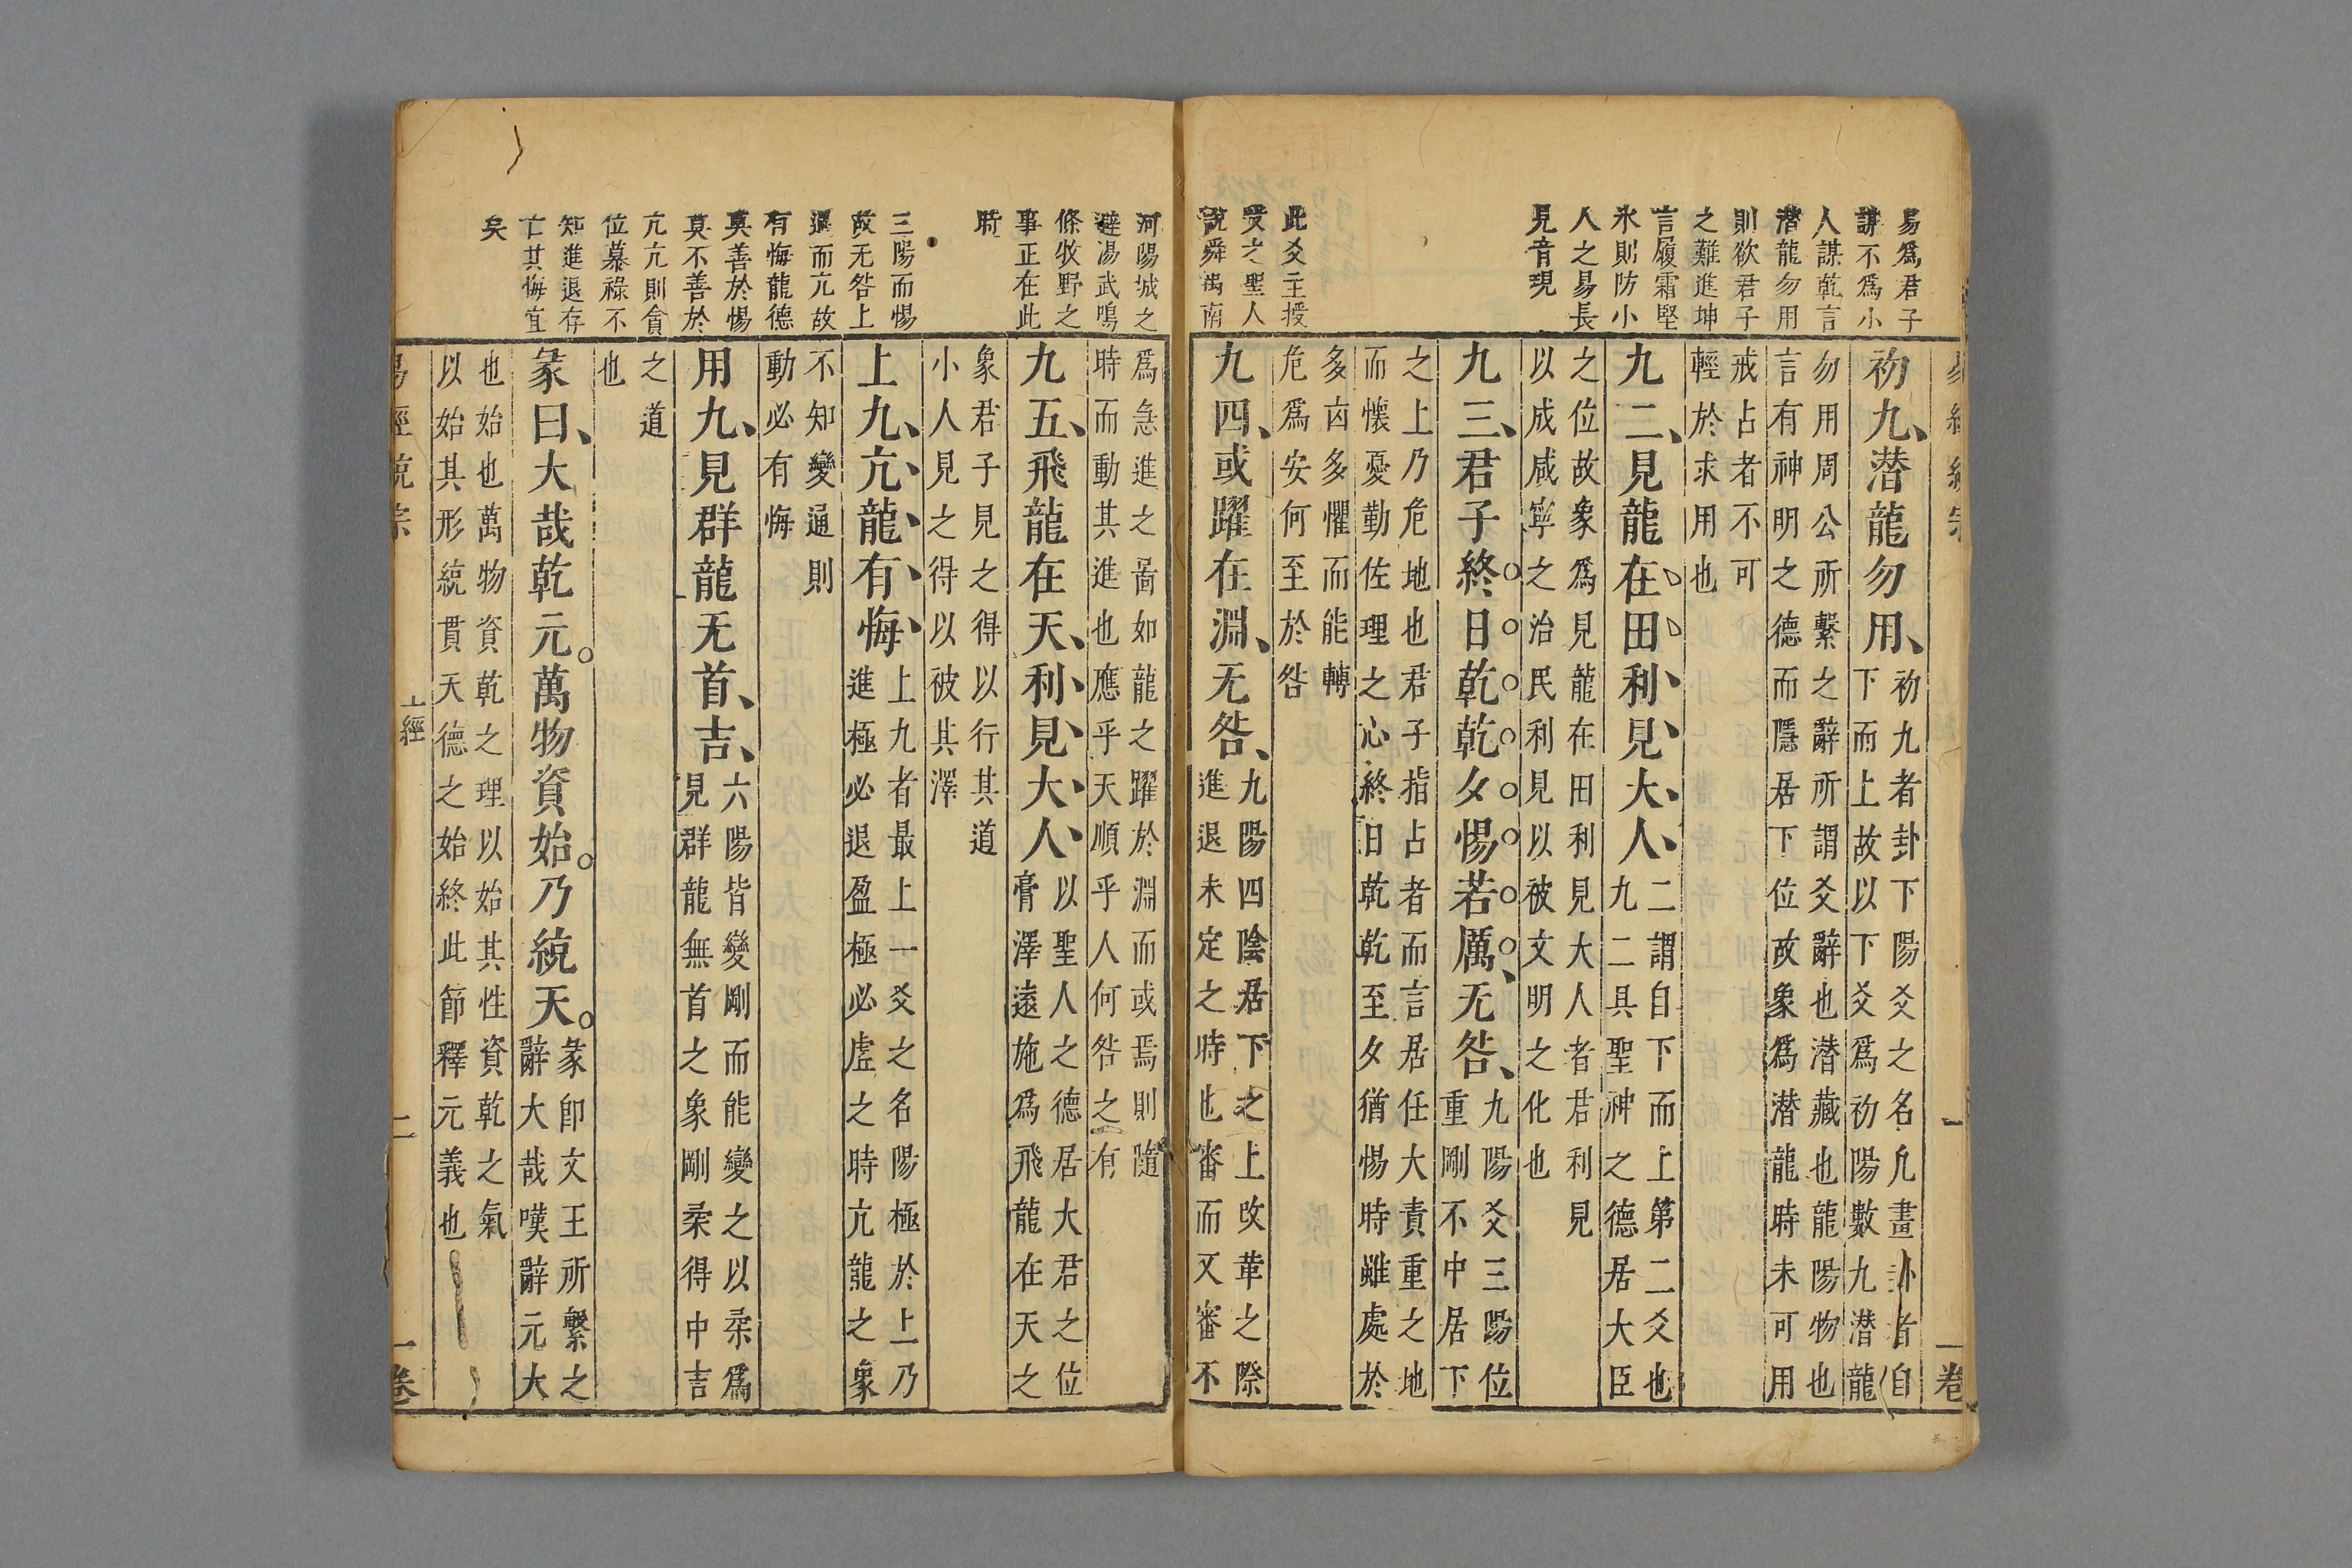 易爲君子
謀不爲小
人謀乾言
潜龍勿用
則欲君子
之難進坤
言履霜堅
氷則防小
人之易長
見音現
此爻主授
受之聖人
說舜禹南
一卷
初九、潜龍勿用、
初九者卦下陽爻之名凡畫卦者自
下而上故以下爻爲初陽數九潜龍
勿用周公所繫之辭所謂爻辭也潜藏也龍陽物也
言有神明之德而隱居下位故象爲潜龍時未可用
戒占者不可
輕於求用也
九二、見龍在田、利、見、大、人、
二謂自下而上第二爻也
九二具聖神之德居大臣
之位故象爲見龍在田利見大人者君利見
以成咸寧之治民利見以被文明之化也
九三、君子終日乾乾夕惕若厲、无咎、
九陽爻三陽位
重剛不中居下
之上乃危地也君子指占者而言居任大責重之地
而懷憂勤佐理之心終日乾乾至夕猶惕時雖處於
多凶多懼而能轉
危爲安何至於咎
九四、或躍在淵、无咎、
九陽四陰居下之上改革之際
進退未定之時也審而又審不
河陽城之
避湯武鳴
條牧野之
事正在此
時
三陽而惕
故无咎上
過而亢故
有悔龍德
莫善於惕
莫不善於
亢亢則貪
位慕祿不
知進退存
亡其悔宜
矣
爲急進之啚如龍之躍於淵而或焉則隨
時而動其進也應乎天順乎人何咎之有
九五、飛龍在天、利、見、大、人、
以聖人之德居大君之位
膏澤遠施爲飛龍在天之
象君子見之得以行其道
小人見之得以被其澤
上九、亢、龍、有、悔、
上九者最上一爻之名陽極於上乃
進極必退盈極必虛之時亢龍之象
不知變通則
動必有悔
用九、見群龍无首、吉、
六陽皆變剛而能變之以柔爲
見群龍無首之象剛柔得中吉
之道
也
彖曰、大哉乾元。萬物資始。乃統天。
彖卽文王所繫之
辭大哉嘆辭元大
也始也萬物資乾之理以始其性資乾之氣
以始其形統貫天德之始終此節釋元義也
易經統宗
上經
二
一卷